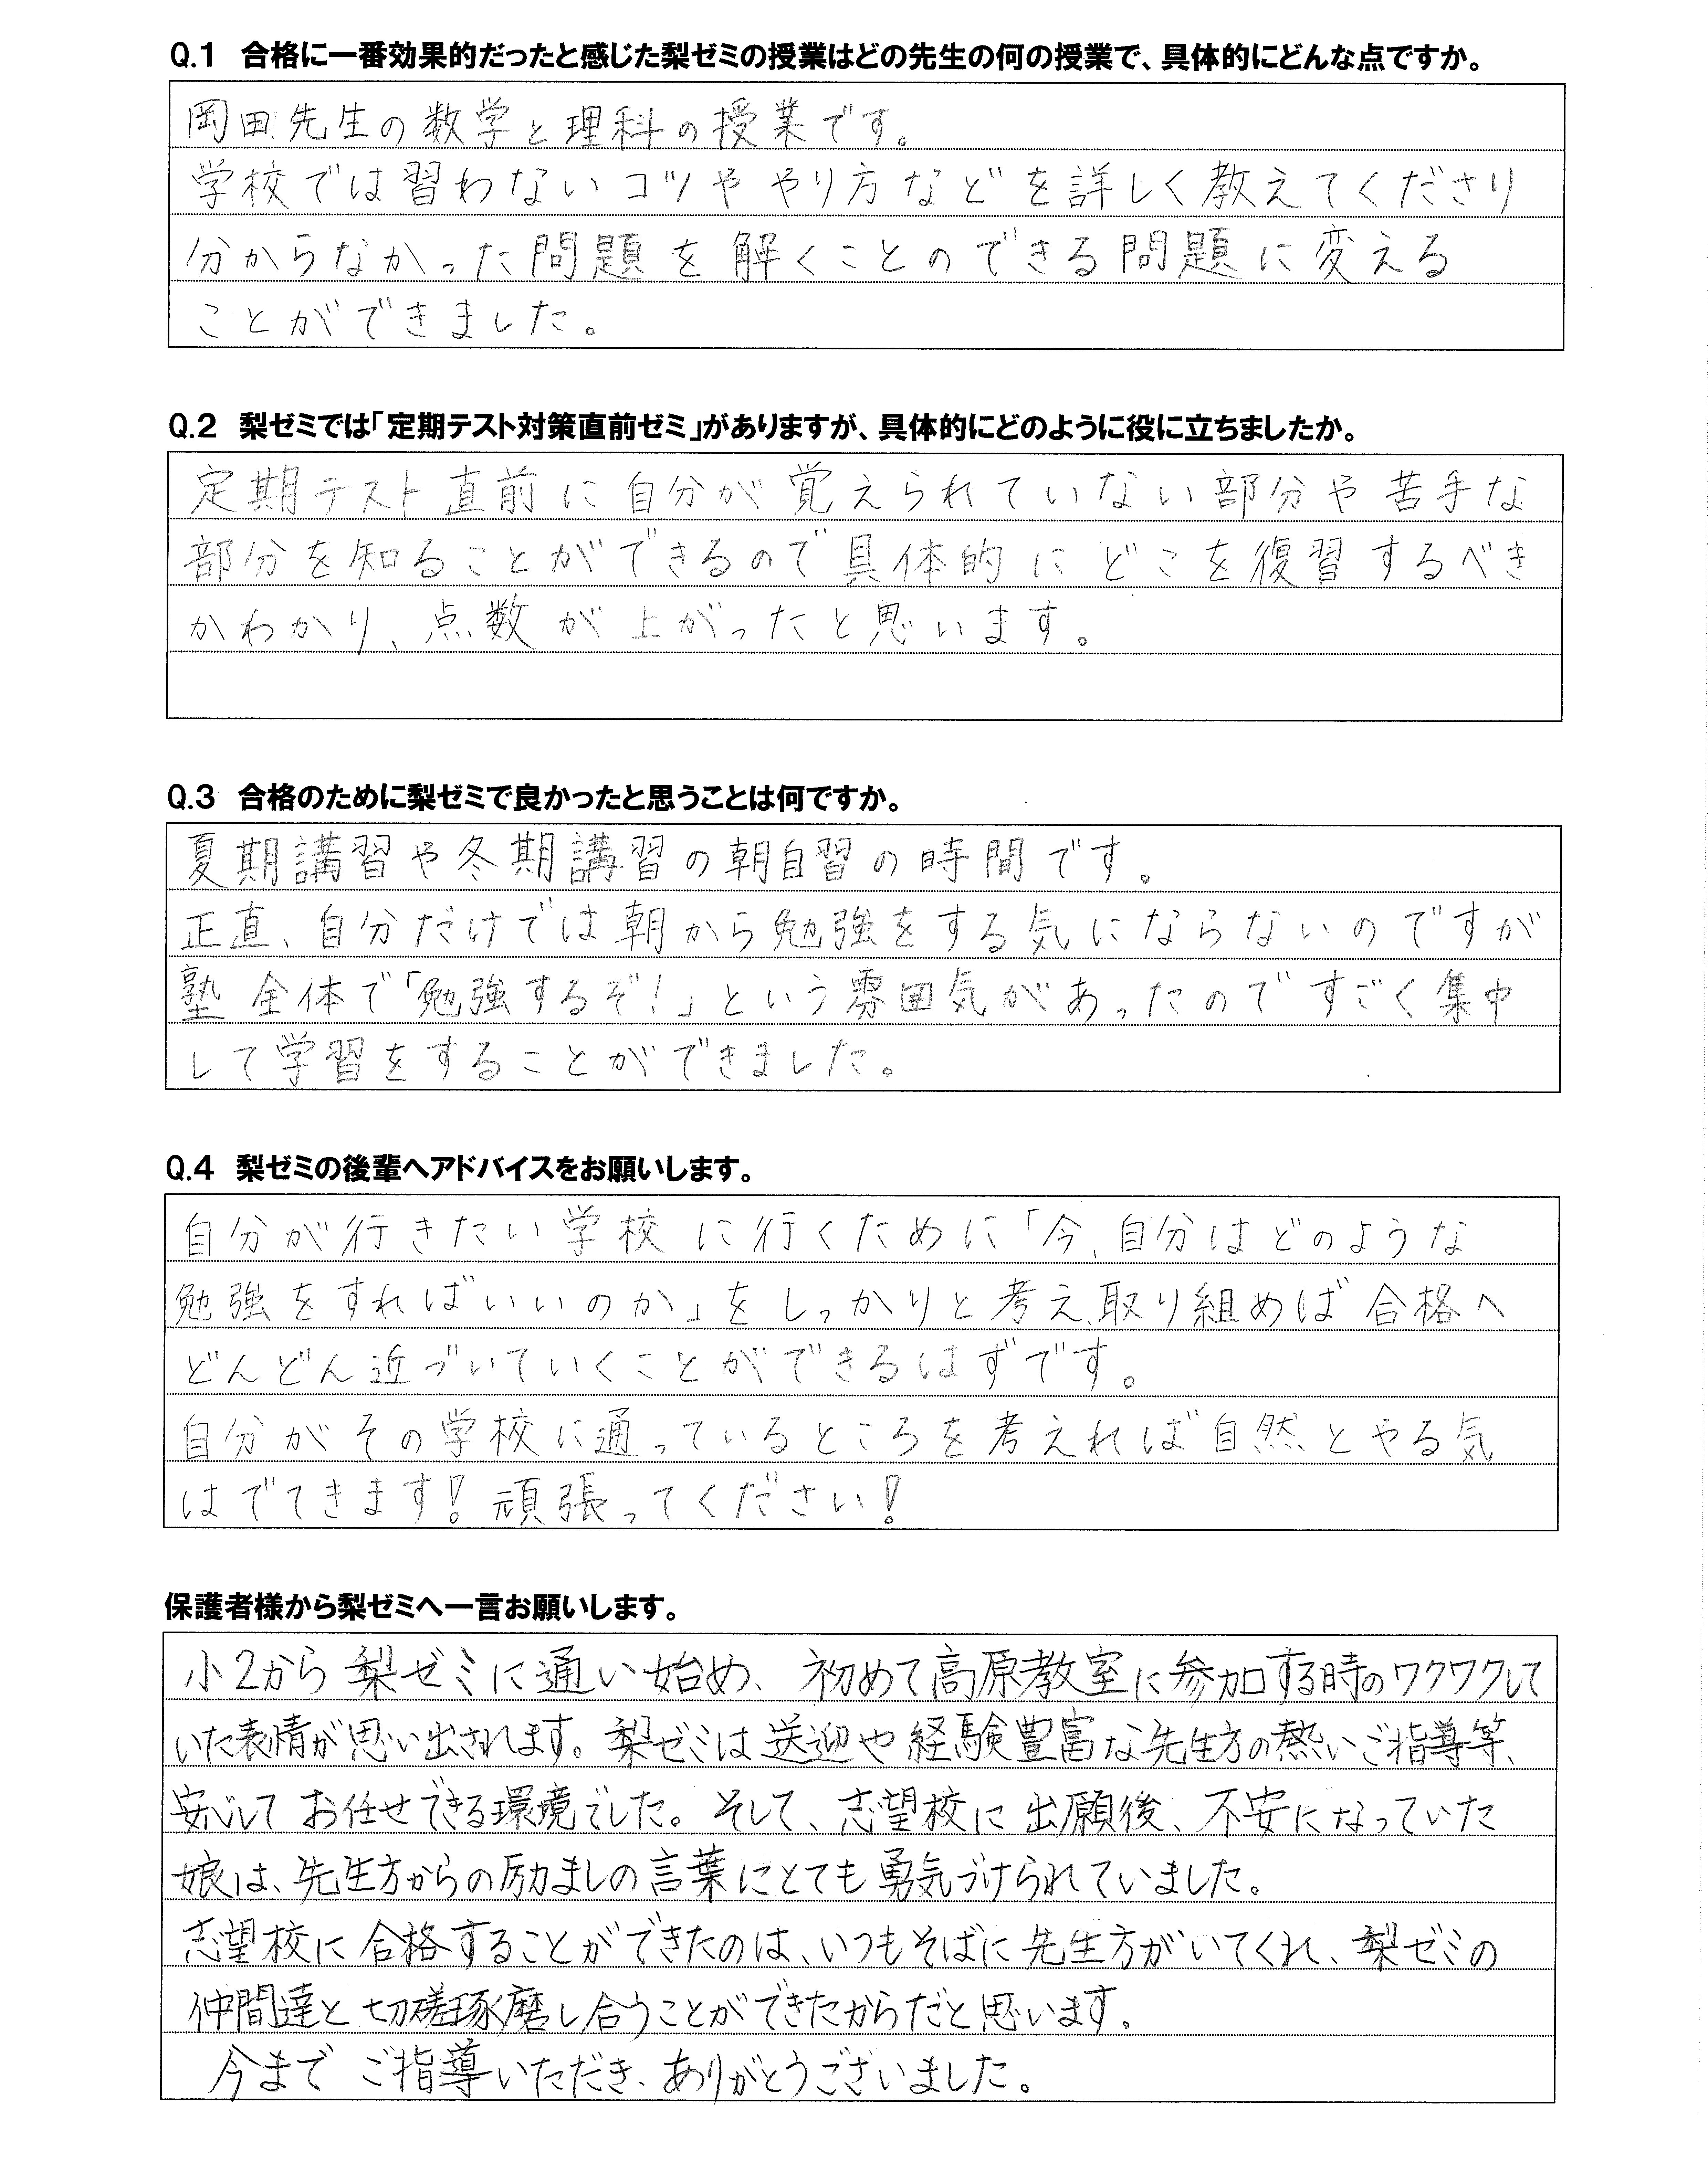 Q.1 合格に一番効果的だったと感じた梨ゼミの授業はどの先生の何の授業で、具体的にどんな点ですか。
岡田先生の数学と理科の授業です。
学校では習わないコツややり方などを詳しく教えてくださり
分からなかった問題を解くことのできる問題に変える
ことができました。
Q.2 梨ゼミでは「定期テスト対策直前ゼミ」がありますが、具体的にどのように役に立ちましたか。
定期テスト直前に自分が覚えられていない部分や苦手な
部分を知ることができるので具体的にどこを復習するべき
かわかり、点数が上がったと思います。
Q.3 合格のために梨ゼミで良かったと思うことは何ですか。
夏期講習や冬期講習の朝自習の時間です。
正直、自分だけでは朝から勉強をする気にならないのですが
塾全体で「勉強するぞ!」という雰囲気があったのですごく集中
して学習をすることができました。
Q.4 梨ゼミの後輩へアドバイスをお願いします。
自分が行きたい学校に行くために「今、自分はどのような
勉強をすればいいのか」をしっかりと考え、取り組めば合格へ
どんどん近づいていくことができるはずです。
自分がその学校に通っているところを考えれば自然とやる気
はでてきます!頑張ってください!
保護者様から梨ゼミへ一言お願いします。
小2から梨ゼミに通い始め、初めて高原教室に参加する時のワクワクして
いた表情が思い出されます。梨ゼミは送迎や経験豊富な先生方の熱いご指導等、
安心してお任せできる環境でした。そして、志望校に出願後、不安になっていた
娘は、先生方からの励ましの言葉にとても勇気づけられていました。
志望校に合格することができたのは、いつもそばに先生方がいてくれ、梨ゼミの
仲間達と切磋琢磨し合うことができたからだと思います。
今までご指導いただき、ありがとうございました。